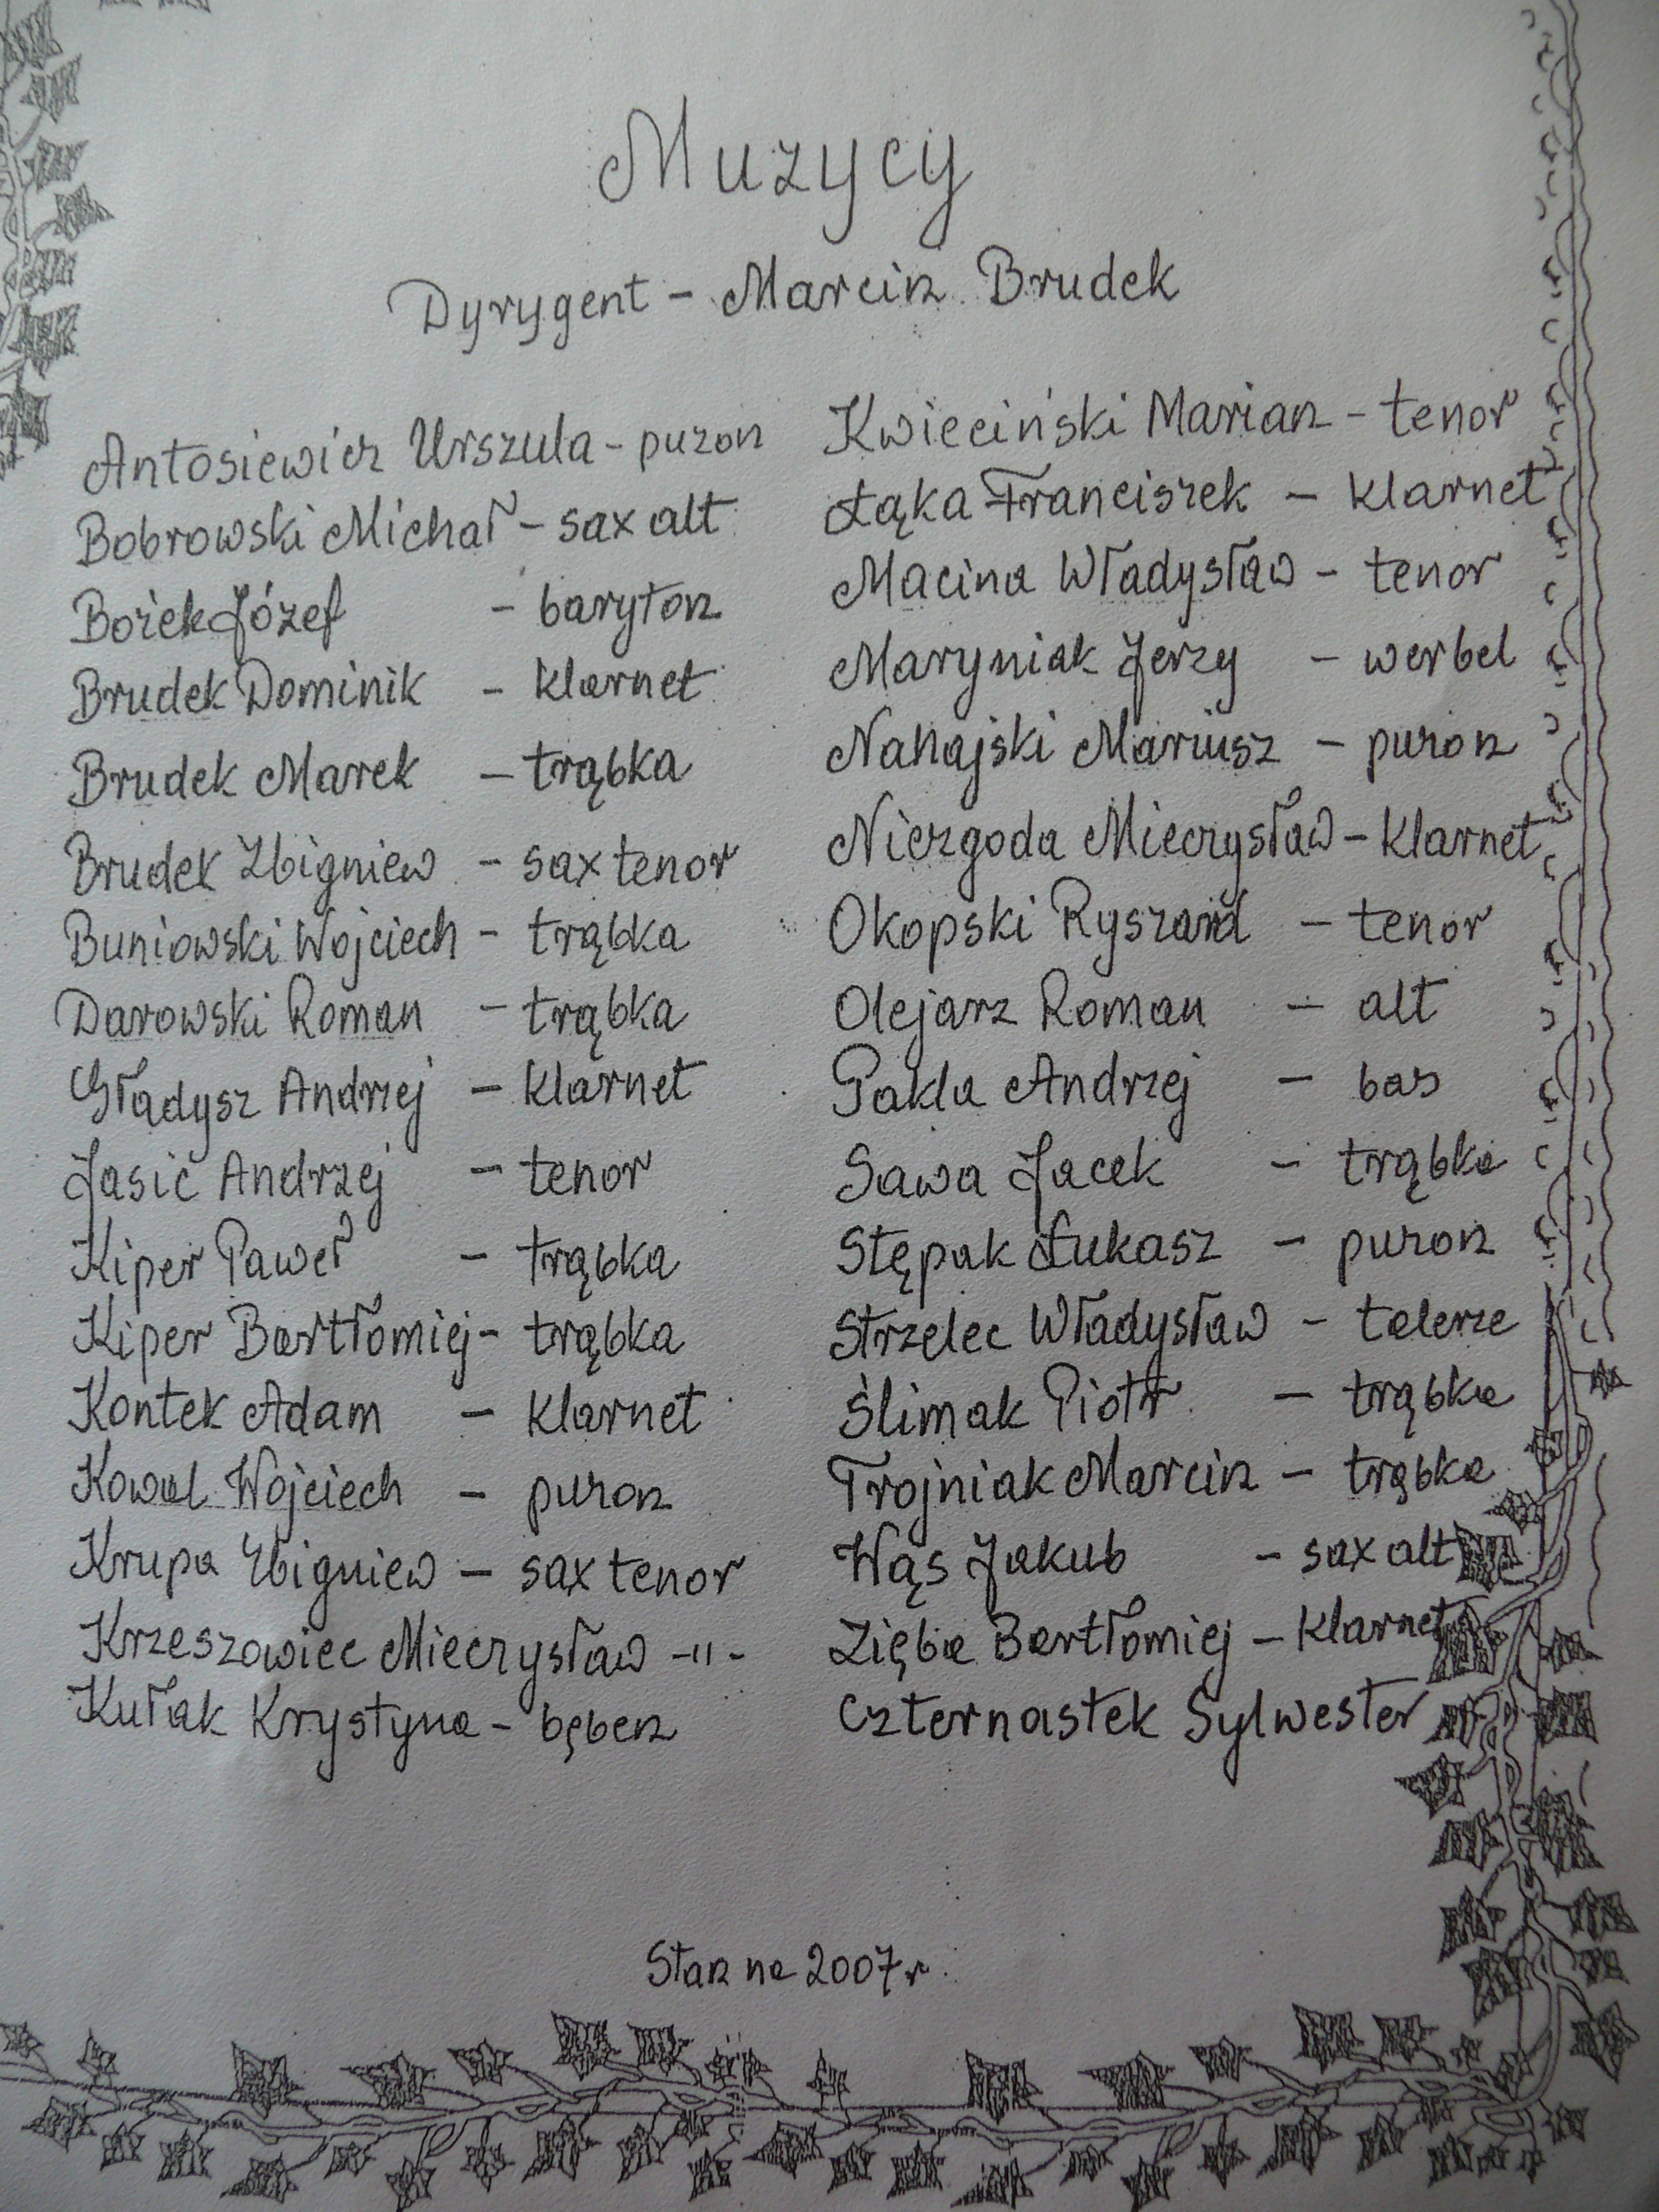 Muzycy
Dyrygent - Marcin Brudek
Antosiewicz Urszula - puzon
Bobrowski Michał - sax alt
Bożek Józef - baryton
Brudek Dominik - klarnet
Brudek Marek - trąbka
Brudek Zbigniew - sax tenor
Buniowski Wojciech - trąbka
Darowski Roman - trąbka
Gładysz Andrzej - klarnet
Jasić Andrzej - tenor
Kiper Paweł - trąbka
Kiper Bartłomiej - trąbka
Kontek Adam - klarnet
Kowal Wojciech - puzon
Krupa Zbigniew - sax tenor
Krzeszowiec Mieczysław -"-
Kułak Krystyna - bęben
Kwieciński Marian - tenor
Łąka Franciszek - klarnet
Macina Władysław - tenor
Maryniak Jerzy - werbel
Nahajski Mariusz - puzon
Niezgoda Mieczysław - klarnet
Okopski Ryszard - tenor
Olejarz Roman - alt
Pakla Andrzej - bas
Sawa Jacek - trąbka
Stępak Łukasz - puzon
Strzelec Władysław - talerze
Ślimak Piotr - trąbka
Trojniak Marcin - trąbka
Wąs Jakub - sax alt
Zięba Bartłomiej - klarnet
Czternastek Sylwester
Stan na 2007 r.